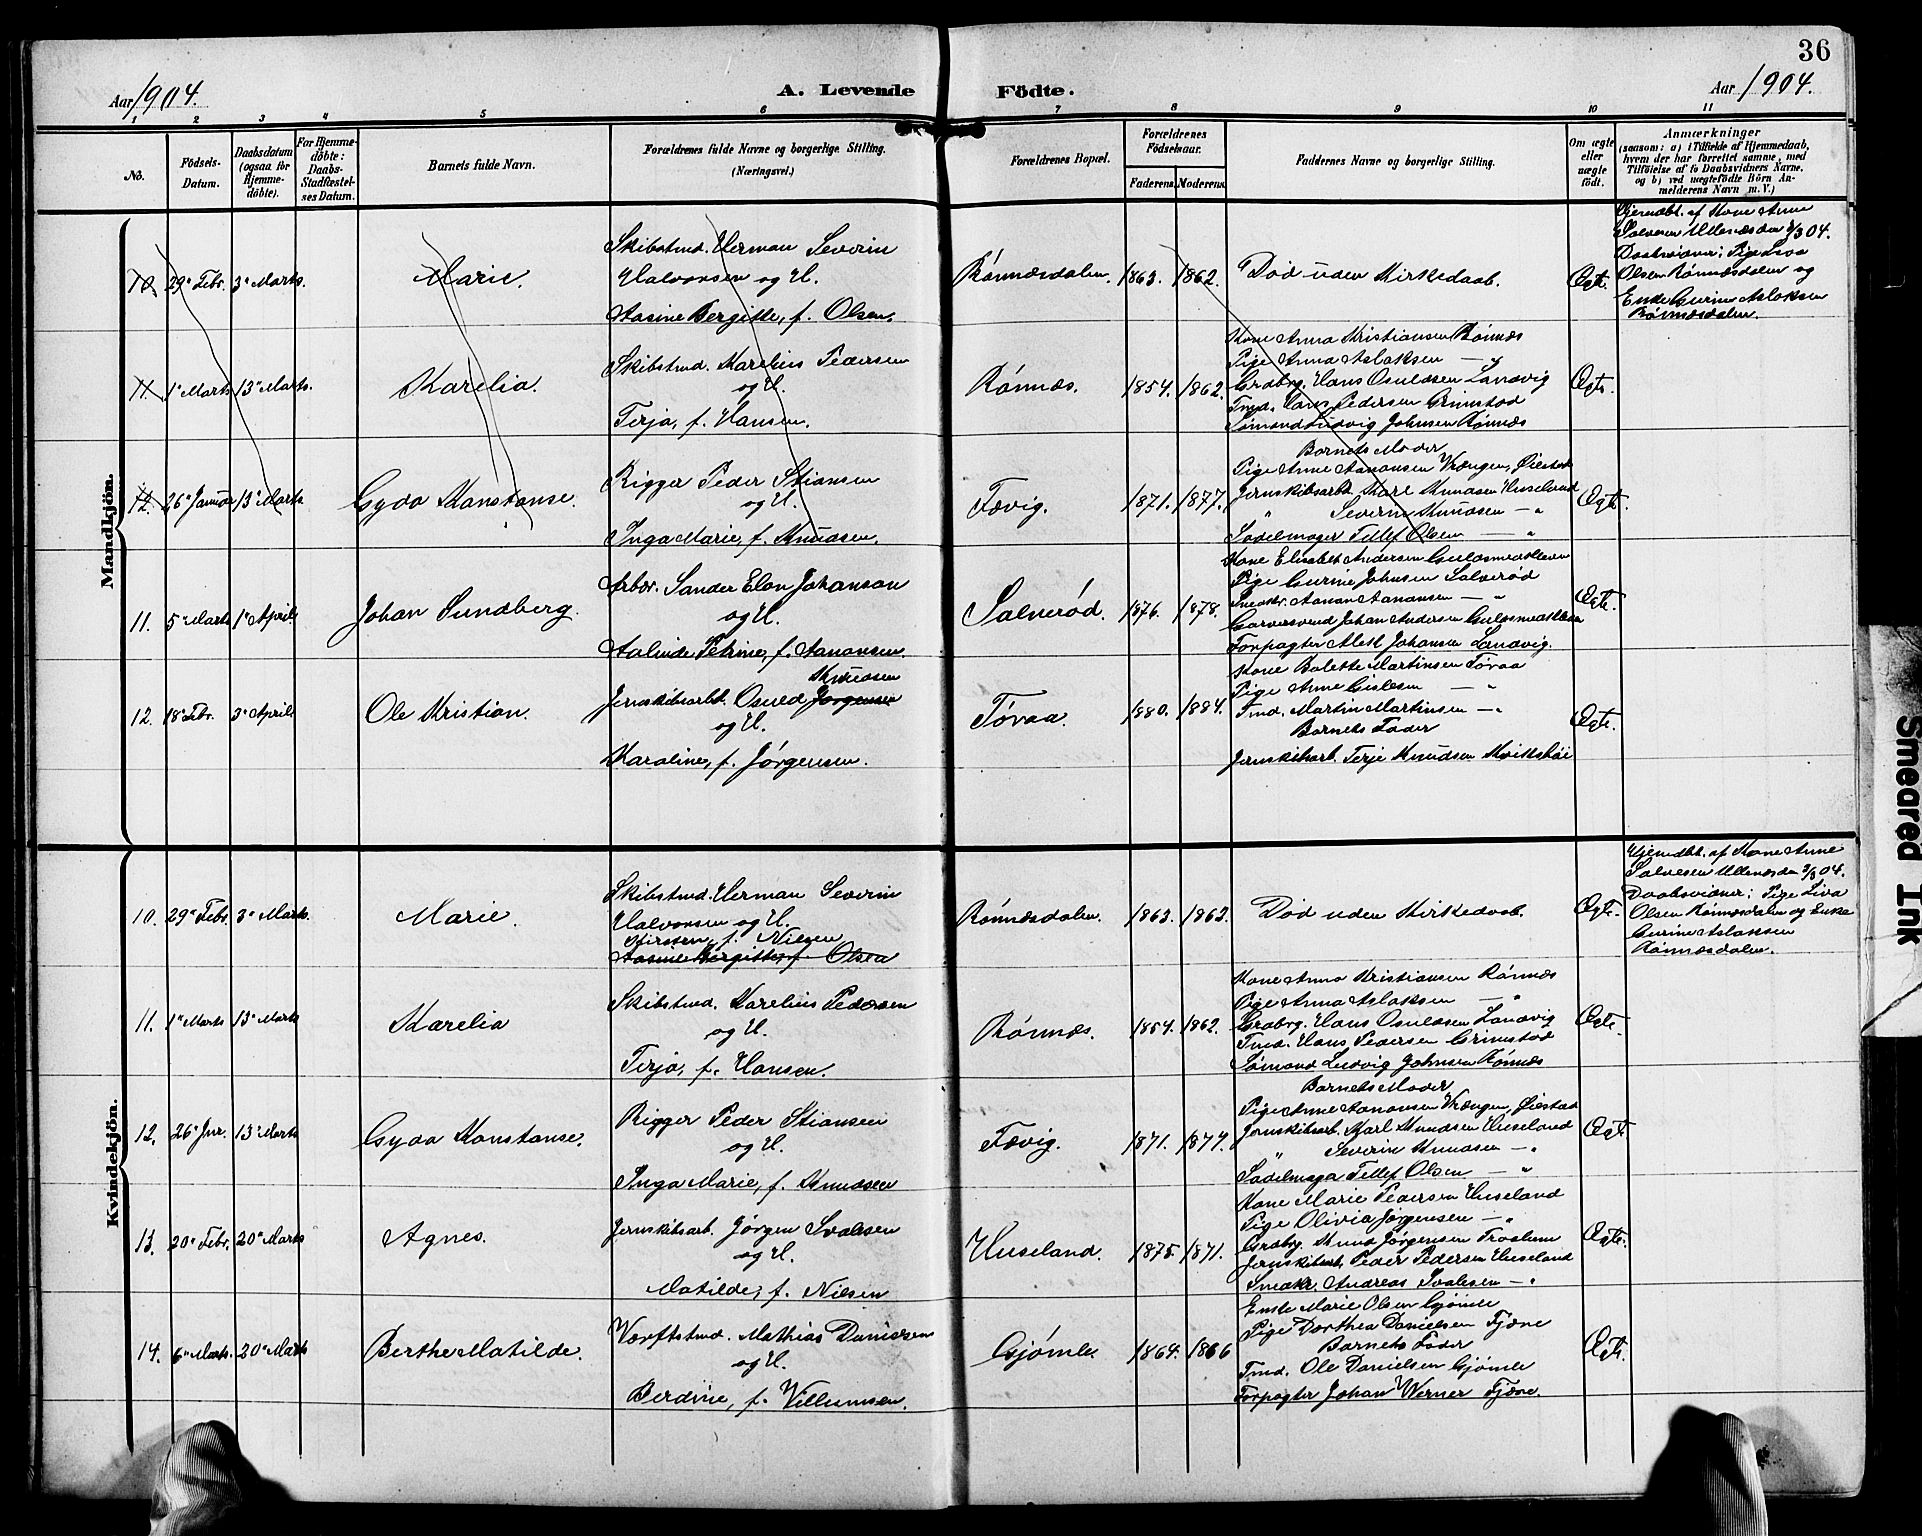 36
Aar 1904.
A. Levende Födte.
Aar 1904.
1 2 3 4 5 6 7 8 9 10 11
No.
Födsels-Datum.
Daabsdatum (ogsaa for Hjemme-döbte).
For Hjemme-döbte: Daabs-Stadfæstel-ses Datum.
Barnets fulde Navn.
Forældrenes fulde Navne og borgerlige Stilling. (Næringsvei.)
Forældrenes Bopæl.
Forældrenes Födselsaar.
Faderens. Moderens.
Faddernes Navne og borgerlige Stilling.
Om ægte eller uægte födt.
Anmærkninger
(saasom: a) i Tilfælde af Hjemmedaab, hvem der har forrettet samme, med Tilföielse af to Daabsvidners Navne, og b) ved uægtefödte Börn An-melderens Navn m. V.)
Mandkjön.
10. 29de Febr. 3de Marts. Marie.
Skibstmd. Herman Severin
Halvorsen og H.
Aasine Bergitte, f. Olsen.
Rönnesdalen. 1863. 1862.
Död uden Kirkedaab.
Ægte.
Hjemdbt. af Kone Anne
Salvesen Ullenes den 3/3 04.
Daabsvidner: Pige Liva
Olsen Rönnesdalen og
Enke Gurine Aslaksen
Rönnesdalen.
11. 1ste Marts 13de Marts. Karelia.
Skibstmd. Karelius Pedersen
og H.
Terja, f. Hansen.
Rönnes. 1854. 1862.
Kone Anna Kristiansen Rönnes
Pige Anna Aslaksen — "
Grdbrg. Hans Osuldsen Landvig
Tmd. Hans Pedersen Grimstad
Sömand Ludvig Johnsen Rönnes
Ægte.
12. 26de Januar 13de Marts Gyda Konstanse.
Rigger Peder Stiansen
og H.
Inga Marie, f. Knudsen.
Fævig. 1871. 1877.
Barnets Moder
Pige Anne Aanonsen Vrængen, Öiestad
Jernskibsarbt. Karl Knudsen Huseland
" Severin Knudsen — "
Sadelmager Tellef Olsen — "
Ægte.
11. 5te Marts 1ste April Johan Sundberg.
Arbdr. Sander Elon Johanson
og H.
Aalinde Petrine, f. Aanonsen.
Salveröd. 1876. 1878.
Kone Elisabet Andersen Guldsmedkleven
Pige Gurine Johnsen Salveröd
Snedkr. Aanon Aanonsen — "
Garversvend Johan Andersen Guldsmedkleven
Forpagter Alett Johansen Landvig.
Ægte.
12. 18de Febr. 3de April Ole Kristian.
Knudsen
Jernskibsarbt. Osuld Jörgensen
og H.
Karoline, f. Jörgensen.
Töraa. 1880. 1884.
Kone Bolette Martinsen Töraa
Pige Anne Gislesen — "
Tmd. Martin Martinsen — "
Barnets Fader
Jernskibsarb. Terje Knudsen Kvikshöi
Ægte.
Kvindekjön.
10. 29de Febr. 3de Marts. Marie.
Skibstmd. Herman Severin
Halvorsen og H.
Kirsten, f. Nielsen
Aasine Bergitte, f. Olsen
Rönnesdalen. 1863. 1863.
Död uden Kirkedaab.
Ægte.
Hjemdbt. af Kone Anne
Salvesen Ullenes den 3/3 04.
Daabsvidner: Pige Liva
Olsen Rönnesdalen og Enke
Gurine Aslaksen
Rönnesdalen.
11. 1ste Marts 13de Marts Karelia
Skibstmd. Karelius Pedersen
og H.
Terja, f. Hansen.
Rönnes. 1854. 1862.
Kone Anna Kristiansen Rönnes
Pige Anna Aslaksen — "
Grdbrg. Hans Osuldsen Landvig
Tmd. Hans Pedersen Grimstad
Sömand Ludvig Johnsen Rönnes
Ægte.
12. 26de Jnr. 13de Marts Gyda Konstanse.
Rigger Peder Stiansen
og H.
Inga Marie, f. Knudsen
Fævig. 1871. 1877.
Barnets Moder
Pige Anne Aanonsen Vrængen, Öiestad
Jernskibsarb. Karl Knudsen Huseland
" Severin Knudsen — "
Sadelmager Tellef Olsen — "
Ægte.
13. 20de Febr. 20de Marts Agnes.
Jernskibsarb. Jörgen Svalesen
og H.
Matilde, f. Nilsen
Huseland. 1875. 1871.
Kone Marie Pedersen Huseland
Pige Olivia Jörgensen — "
Grdbrg. Knud Jörgensen Froslum
Jernskibsarb. Peder Pedersen Huseland
Snedkr. Andreas Svalesen — "
Ægte.
14. 6te Marts. 20de Marts Berthe Matilde.
Værftstmd. Mathias Danielsen
og H.
Berdine, f. Villumsen.
Gjömle. 1864. 1866
Enke Marie Olsen Gjömle
Pige Dorthea Danielsen Fjære
Barnets Fader
Tmd. Ole Danielsen Gjömle
Forpagter Johan Werner Fjære.
Ægte.
Smeared Ink